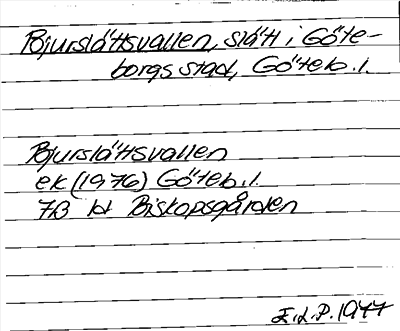 Bjurslättsvallen, slätt i Göte-
borgs stad, Göteb. l.
Bjurslättsvallen
ek (1976) Göteb. l.
7B bl Biskopsgården
E.L.P. 1977